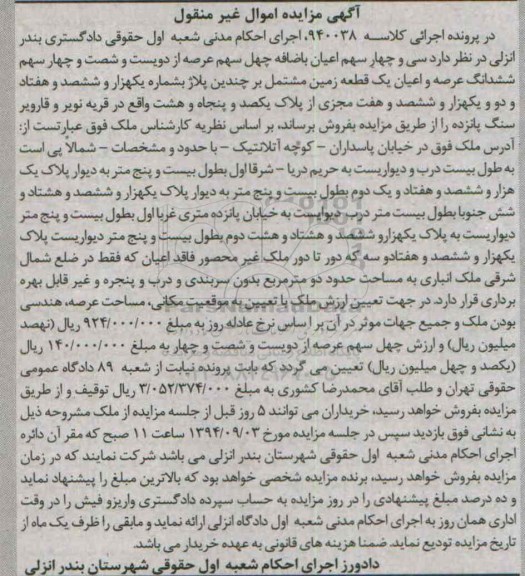 آگهی مزایده اموال غیر منقول
در پرونده اجرائی کلاسه ۹۴۰۰۳۸، اجرای احکام مدنی شعبه اول حقوقی دادگستری بندر
انزلی در نظر دارد سی و چهار سهم اعیان باضافه چهل سهم عرصه از دویست و شصت و چهار سهم
ششدانگ عرصه و اعیان یک قطعه زمین مشتمل بر چندین پلاژ بشماره یکهزار و ششصد و هفتاد
و دو و یکهزار و ششصد و هفت مجزی از پلاک یکصد و پنجاه و هشت واقع در قریه نویر و قارویر
سنگ پانزده را از طریق مزایده بفروش برساند، بر اساس نظریه کارشناس ملک فوق عبارتست از:
آدرس ملک فوق در خیابان پاسداران – کوچه آتلانتیک – با حدود و مشخصات – شمالاً پی است
به طول بیست درب و دیواریست به حریم دریا – شرقا اول بطول بیست و پنج متر به دیوار پلاک یک
هزار و ششصد و هفتاد و یک دوم بطول بیست و پنج متر به دیوار پلاک یکهزار و ششصد و هشتاد و
شش جنوبا بطول بیست متر درب دیواریست به خیابان پانزده متری غربا اول بطول بیست و پنج متر
دیواریست به پلاک یکهزارو ششصد و هشتاد و هشت دوم بطول بیست و پنج متر دیواریست پلاک
یکهزار و ششصد و هفتادو سه که دور تا دور ملک غیر محصور فاقد اعیان که فقط در ضلع شمال
شرقی ملک انباری به مساحت حدود دو مترمربع بدون سربندی و درب و پنجره و غیر قابل بهره
برداری قرار دارد. در جهت تعیین ارزش ملک با تعیین به موقعیت مکانی، مساحت عرصه، هندسی
بودن ملک و جمیع جهات موثر در آن بر اساس نرخ عادله روز به مبلغ ۹۲۴/۰۰۰/۰۰۰ ریال (نهصد
میلیون ریال) و ارزش چهل سهم عرصه از دویست و شصت و چهار به مبلغ ۱۴۰/۰۰۰/۰۰۰ ریال
(یکصد و چهل میلیون ریال) تعیین می گردد که بابت پرونده نیابت از شعبه ۸۹ دادگاه عمومی
حقوقی تهران و طلب آقای محمدرضا کشوری به مبلغ ۳/۰۵۲/۳۷۴/۰۰۰ ریال توقیف و از طریق
مزایده بفروش خواهد رسید، خریداران می توانند ۵ روز قبل از جلسه مزایده از ملک مشروحه ذیل
به نشانی فوق بازدید سپس در جلسه مزایده مورخ ۱۳۹۴/۰۹/۰۳ ساعت ۱۱ صبح که مقر آن دائره
اجرای احکام مدنی شعبه اول حقوقی شهرستان بندر انزلی می باشد شرکت نمایند که در زمان
مزایده بفروش خواهد رسید، برنده مزایده شخصی خواهد بود که بالاترین مبلغ را پیشنهاد نماید
و ده درصد مبلغ پیشنهادی را در روز مزایده به حساب سپرده دادگستری واریزو فیش را در وقت
اداری همان روز به اجرای احکام مدنی شعبه اول دادگاه انزلی ارائه نماید و مابقی را ظرف یک ماه از
تاریخ مزایده تودیع نماید. ضمنا هزینه های قانونی به عهده خریدار می باشد.
دادورز اجرای احکام شعبه اول حقوقی شهرستان بندر انزلی